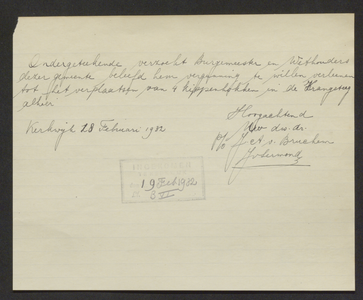 Ondergeteekende verzoekt Burgemeester en Wethouders
dezer gemeente beleefd hem vergunning te willen verleenen
tot het verplaatsen van 4 kippenhokken in de
alhier
Hoogachtend
Kerkwijk 18 Februari 1932
Uw dw. dr.
19 Feb 1932